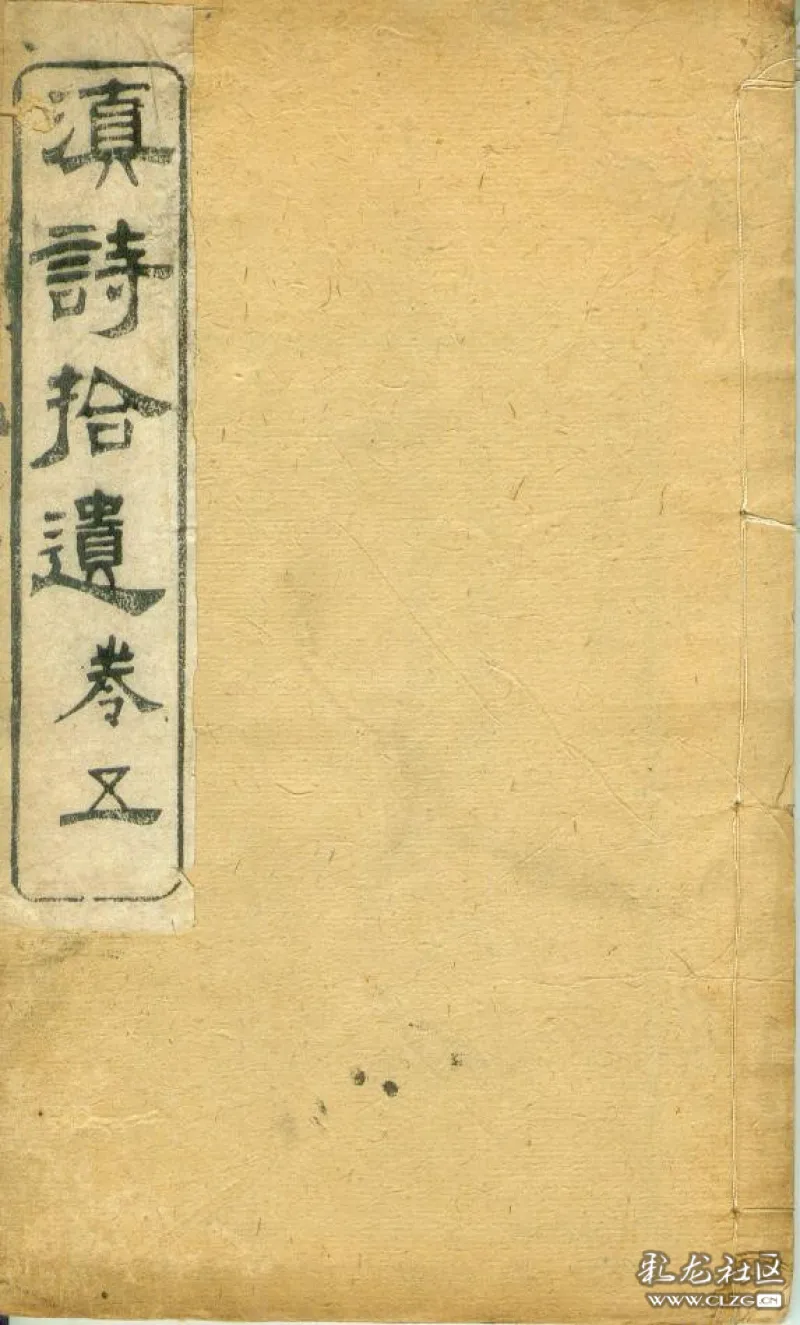 滇詩拾遺卷五
彩龙社区
WWW.CLZG.CN